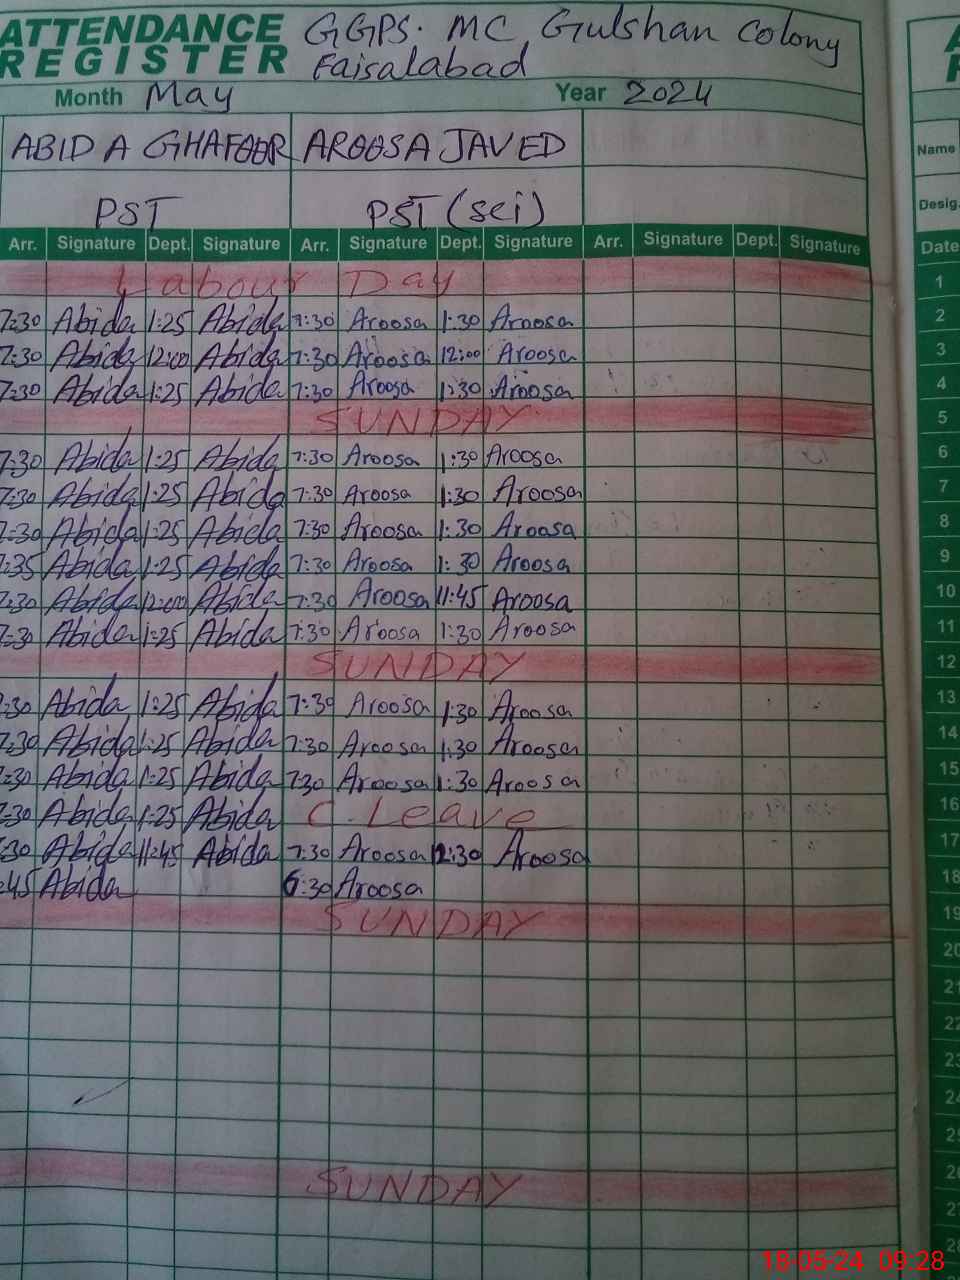 ATTENDANCE REGISTER GGPS. MC Gulshan Colony Faisalabad
Month May Year 2024
ABIDA GHAFOOR AROOSA JAVED
Name
PST PST (sci)
Desig.
Arr. Signature Dept. Signature Arr. Signature Dept. Signature Arr. Signature Dept. Signature Date
Labour Day 1
7:30 Abida 1:25 Abida 7:30 Aroosa 1:30 Aroosa 2
7:30 Abida 12:00 Abida 7:30 Aroosa 12:00 Aroosa 3
7:30 Abida 1:25 Abida 7:30 Aroosa 1:30 Aroosa 4
SUNDAY 5
7:30 Abida 1:25 Abida 7:30 Aroosa 1:30 Aroosa 6
7:30 Abida 1:25 Abida 7:30 Aroosa 1:30 Aroosa 7
7:30 Abida 1:25 Abida 7:30 Aroosa 1:30 Aroosa 8
7:35 Abida 1:25 Abida 7:30 Aroosa 1:30 Aroosa 9
7:30 Abida 12:00 Abida 7:30 Aroosa 11:45 Aroosa 10
7:30 Abida 1:25 Abida 7:30 Aroosa 1:30 Aroosa 11
SUNDAY 12
:30 Abida 1:25 Abida 7:30 Aroosa 1:30 Aroosa 13
7:30 Abida 1:25 Abida 7:30 Aroosa 1:30 Aroosa 14
7:30 Abida 1:25 Abida 7:30 Aroosa 1:30 Aroosa 15
7:30 Abida 1:25 Abida C. Leave 16
:30 Abida 11:45 Abida 7:30 Aroosa 12:30 Aroosa 17
:45 Abida 6:30 Aroosa 18
SUNDAY 19
20
21
22
23
24
25
SUNDAY 26
27
28
18-05-24 09:28